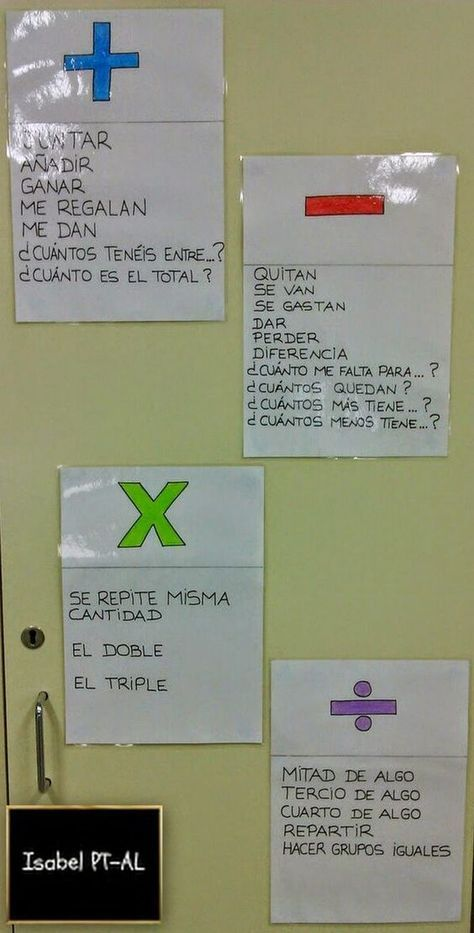 +
JUNTAR
AÑADIR
GANAR
ME REGALAN
ME DAN
¿CUÁNTOS TENÉIS ENTRE...?
¿CUÁNTO ES EL TOTAL?
−
QUITAN
SE VAN
SE GASTAN
DAR
PERDER
DIFERENCIA
¿CUÁNTO ME FALTA PARA...?
¿CUÁNTOS QUEDAN?
¿CUÁNTOS MÁS TIENE...?
¿CUÁNTOS MENOS TIENE...?
X
SE REPITE MISMA
CANTIDAD
EL DOBLE
EL TRIPLE
÷
MITAD DE ALGO
TERCIO DE ALGO
CUARTO DE ALGO
REPARTIR
HACER GRUPOS IGUALES
Isabel PT-AL